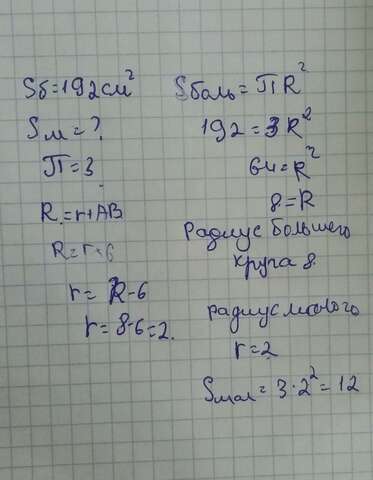 Sб=192см²
Sм=?
П=3
R=r+AB
R=r+6
r=R-6
r=8-6=2
Sболь=ПR²
192=3R²
64=R²
8=R
Радиус большего
круга 8
радиус
r=2
Sмал=3·2²=12